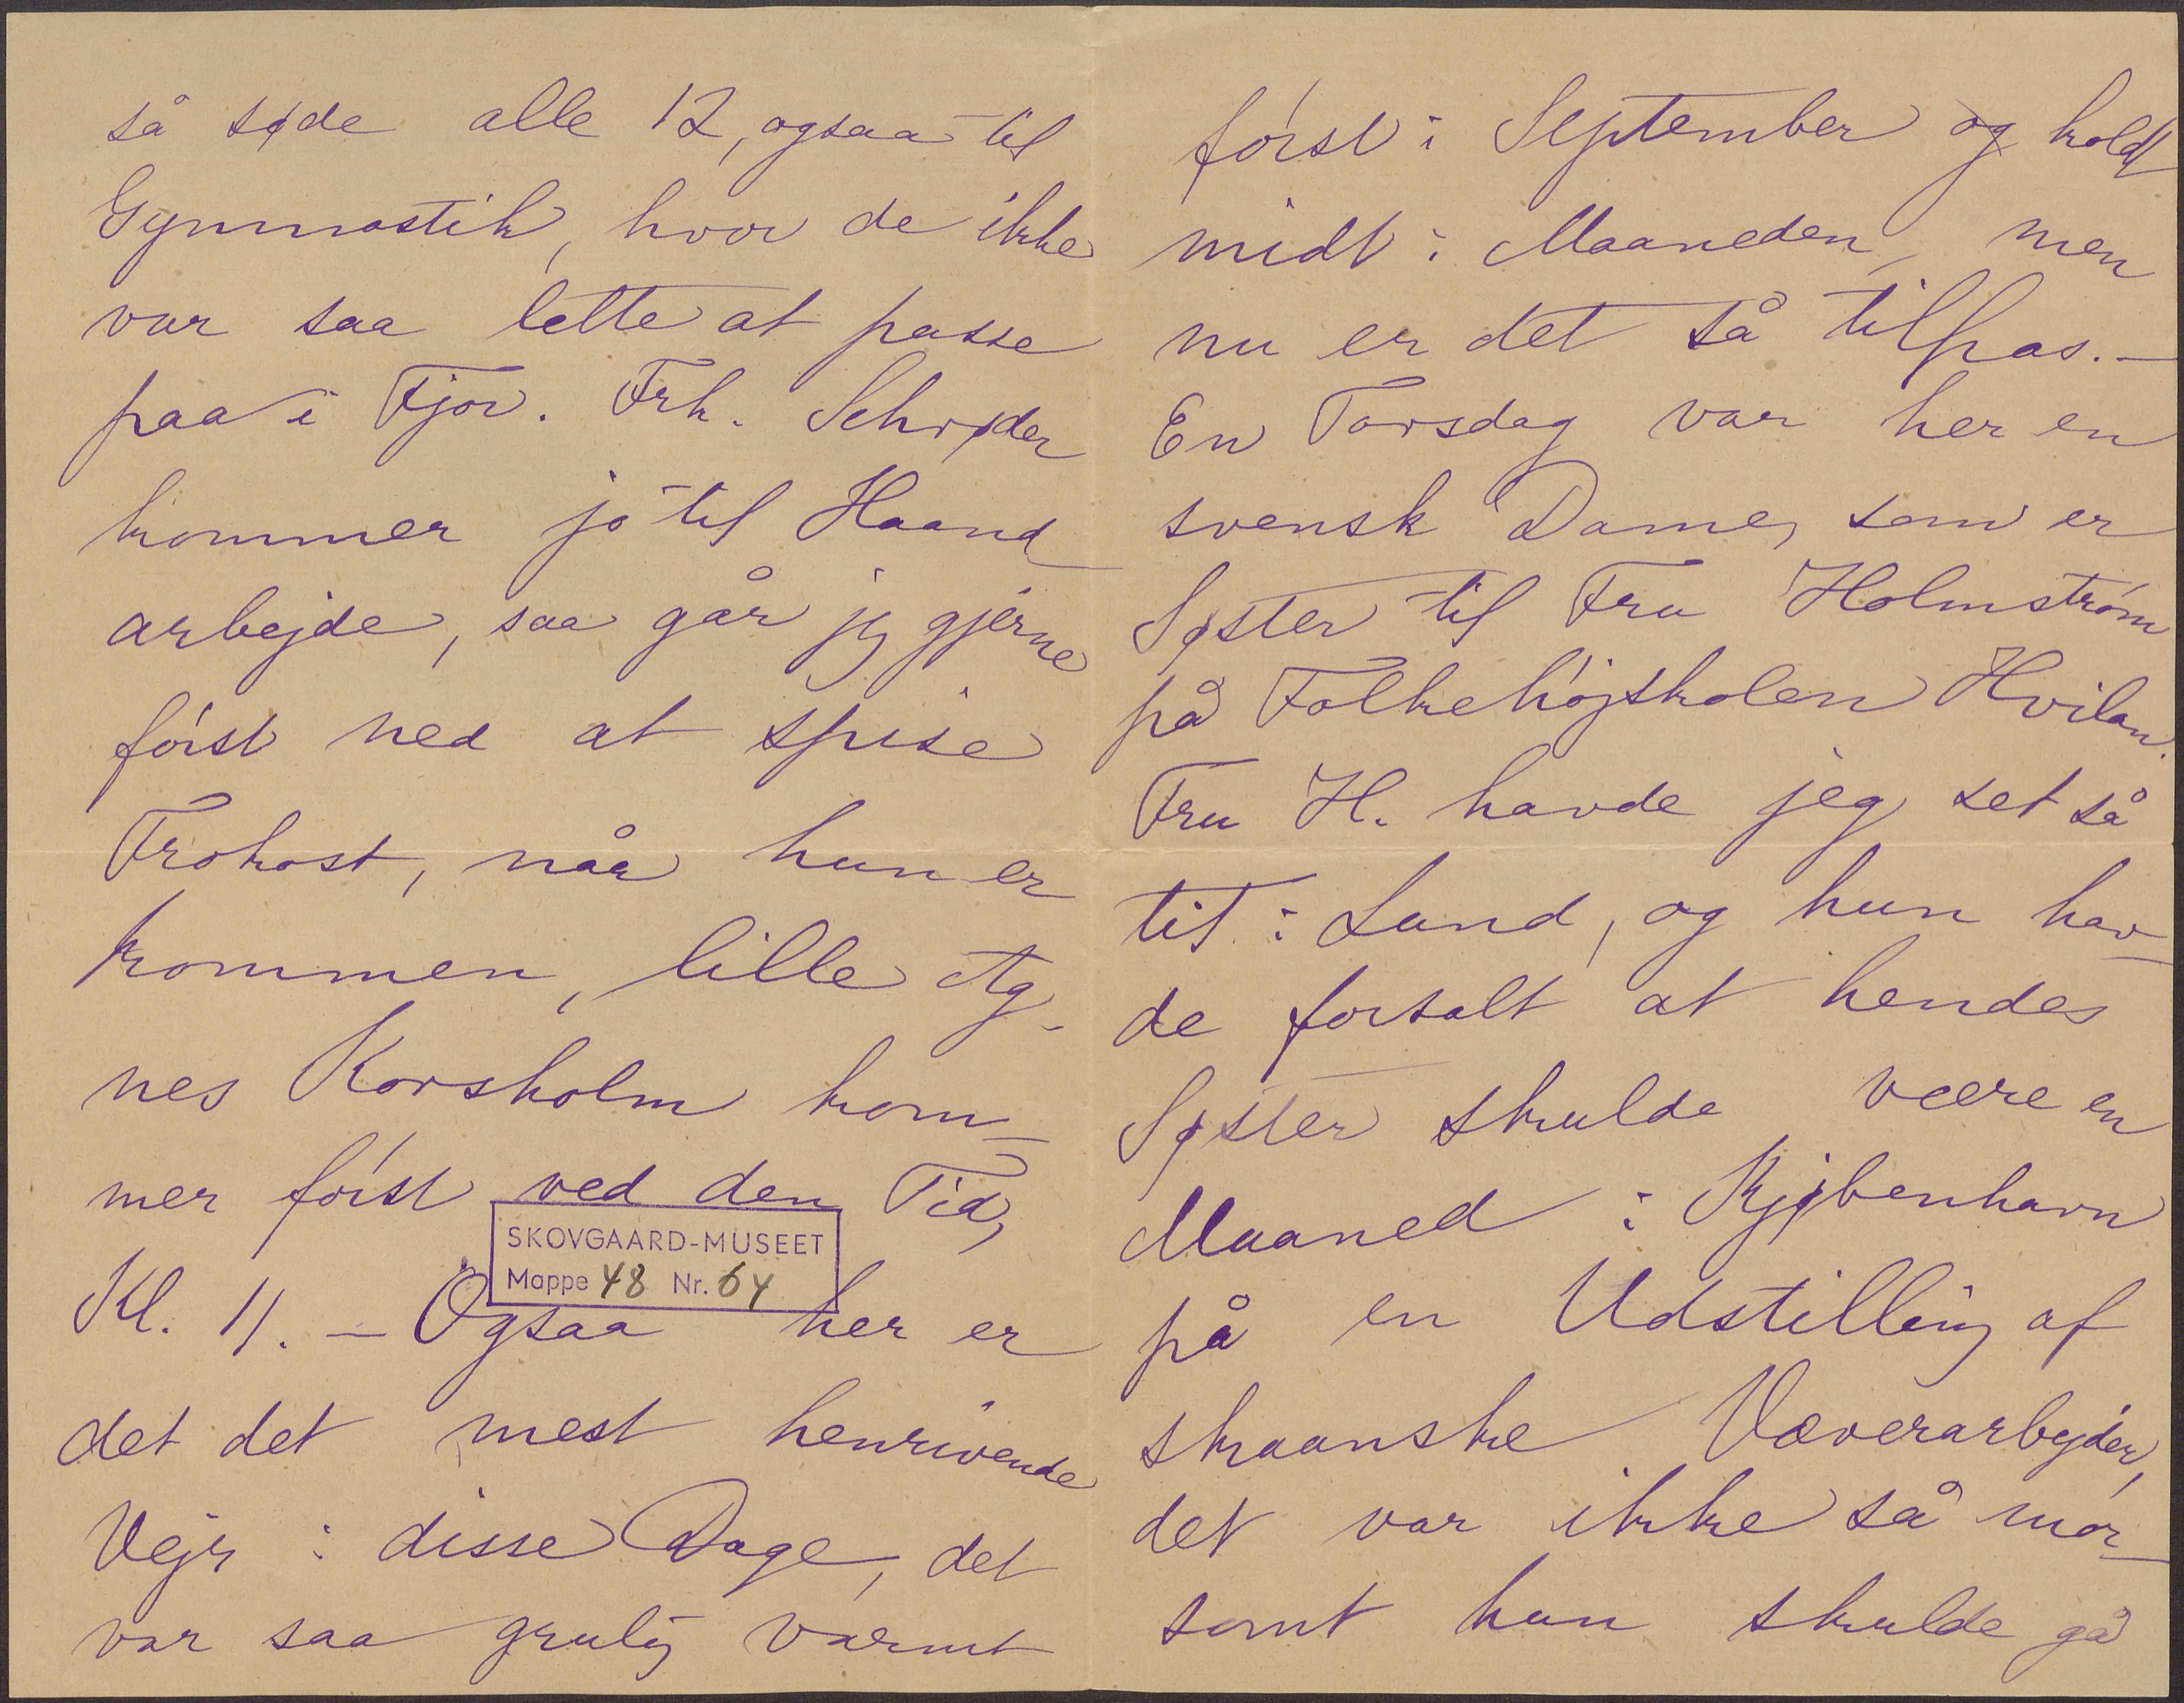 så søde alle 12, ogsaa til
Gymnastik, hvor de ikke
var saa lette at passe
paa i Fjor. Frk. Schrøder
kommer jo til Haand
arbejde, saa går jeg gjerne
først ned at spise
Frokost, når hun er
kommen, lille Ag-
nes Korsholm kom-
mer først ved den Tid,
Kl. 11. – Ogsaa her er
det det mest henrivende
Vejr i disse Dage, det
var saa grulig varmt
SKOVGAARD-MUSEET
Mappe 48 Nr. 64
først i September og koldt
midt i Maaneden, men
nu er det så tilpas. –
En Torsdag var her en
svensk Dame, som er
Søster til Fru Holmström
på Folkehöjskolen Hvilan.
Fru H. havde jeg set så
tit i Lund, og hun hav-
de fortalt at hendes
Søster skulde være en
Maaned i Kjøbenhavn
på en Udstilling af
skaanske Væverarbejder,
det var ikke så mor-
somt hun skulde gå